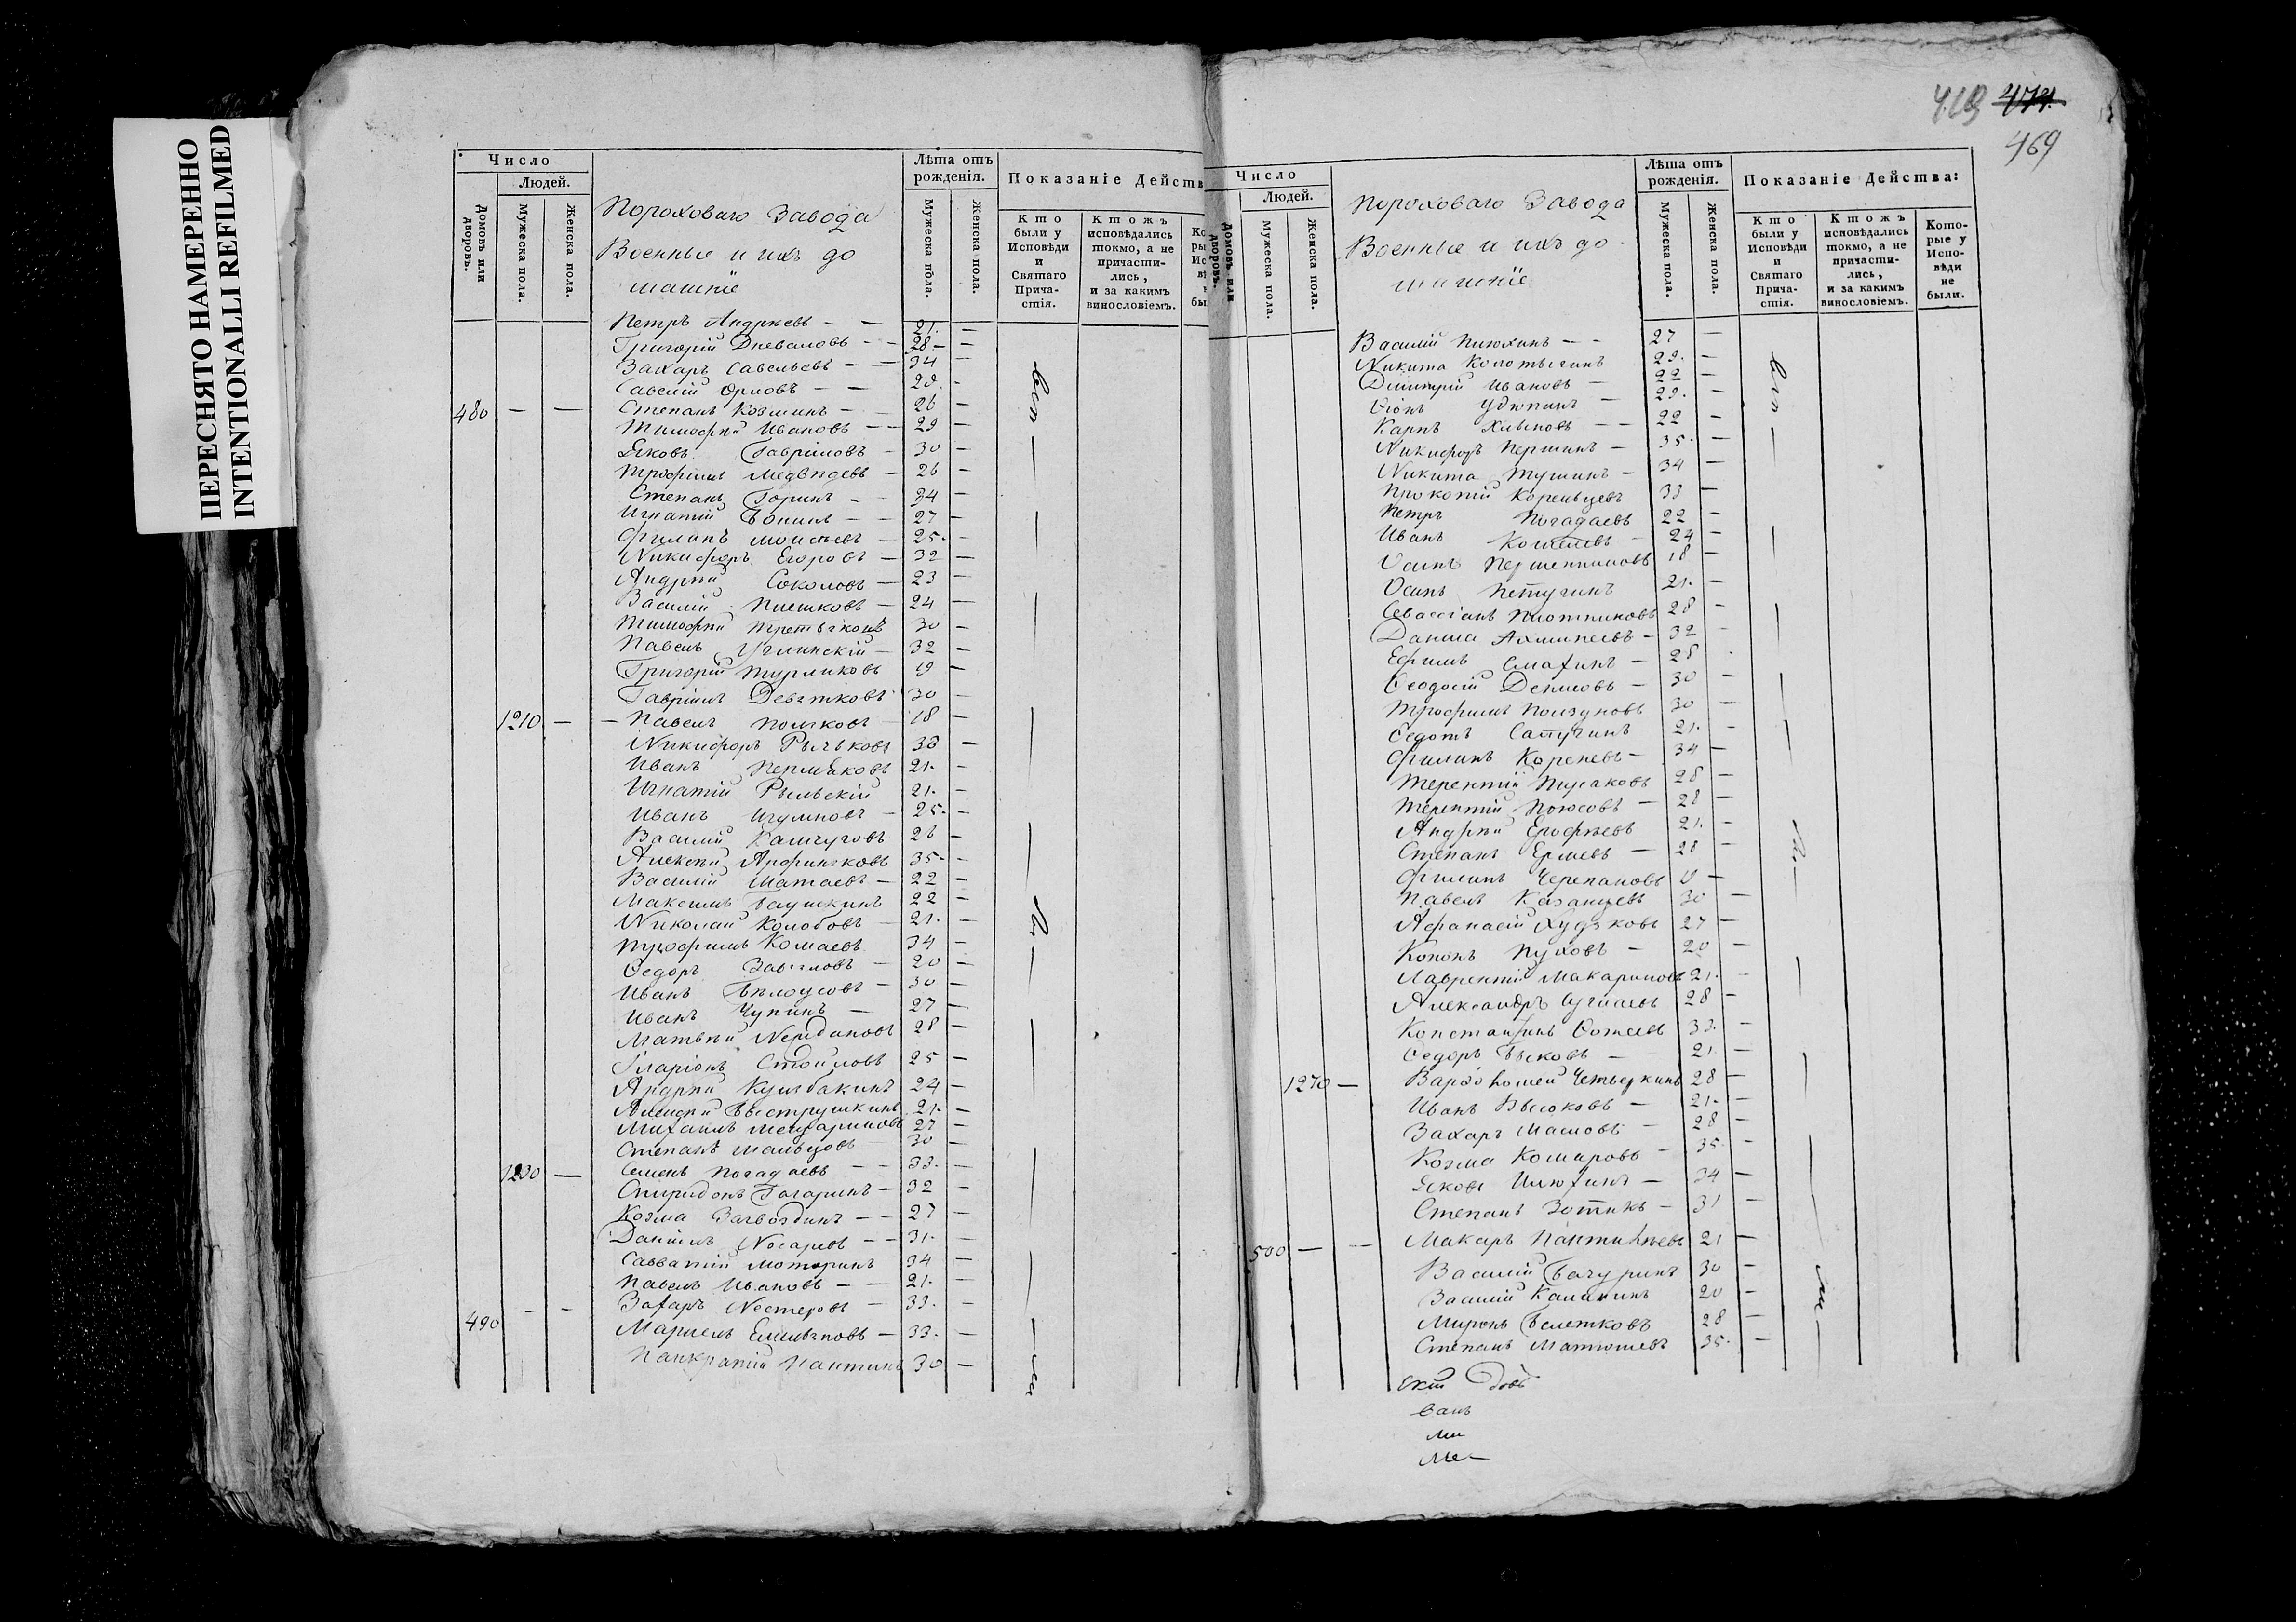 ПЕРЕСНЯТО НАМЕРЕННО
INTENTIONALLI REFILMED
Число
Людей.
Домовъ или дворовъ.
Мужеска пола.
Женска пола.
Пороховаго Завода
Военные и ихъ до
машніе
Лѣта отъ рожденія.
Мужеска пола.
Женска пола.
Показаніе Действ
Кто были у Исповѣди и Святаго Прича-стія.
Ктожъ исповѣдались токмо, а не причасти-лись, и за какимъ винословіемъ.
Петръ Андреевъ — — 21. —
Григорій Дневаловъ — — 28 —
Захаръ Савельевъ — — 34 —
Савелій Орловъ — — 29. —
480 — — Степанъ Козминъ — — 26 —
Тимофѣй Ивановъ — — 29 —
Яковъ Гавриловъ — 30 —
Трофимъ Медвѣдевъ — 26 —
Степанъ Горинъ — — 34 —
Игнатій Бонинъ — — 27 —
Филипъ Моисѣевъ — 25. —
Никифоръ Егоровъ — 32 —
Андрѣй Соколовъ — 23 —
Василій Плешковъ — 24 —
Тимофѣй Третьяковъ 30 —
Павелъ Углинскій — 32 —
Григорій Турляковъ 19 —
Гавріилъ Девятковъ 30 —
1210 — — Павелъ Поляковъ 18 —
Никифоръ Рычьковъ 38 —
Иванъ Пермяковъ 21. —
Игнатій Рыльскій 21. —
Иванъ Игумновъ — 25. —
Василій Камчуговъ 26 —
Алексѣй Анфиньковъ 35. —
Василій Матаевъ — 22 —
Максимъ Баушкинъ 22 —
Николай Колобовъ — 21. —
Трофимъ Комаевъ 34 —
Ѳедоръ Завяловъ — 20 —
Иванъ Бѣлоусовъ — 30 —
Иванъ Чупинъ — 27 —
Матвѣй Неждановъ 28 —
Іларіонъ Стоиловъ 25 —
Андрѣй Кулбакинъ 24 —
Алексѣй Быструшкинъ 21. —
Михаилъ 27 —
Степанъ Мальцовъ 30 —
1230 — Семенъ Погадаевъ — — 33. —
Спиридонъ Гагаринъ — 32 —
Козма Загвоздинъ — — 27 —
Даніилъ Носаревъ — — 31. —
Савватій Моторинъ 34 —
Павелъ Ивановъ — — 21. —
Захаръ Нестеровъ — 33. —
490 — — Маркелъ Емельяновъ — 33. —
Панкратій Пантинъ 30 —
469
Число
Людей.
Домовъ или дворовъ.
Мужеска пола.
Женска пола.
Пороховаго Завода
Военные и ихъ до
машніе
Лѣта отъ рожденія.
Мужеска пола.
Женска пола.
Показаніе Действа:
Кто были у Исповѣди и Святаго Прича-стія.
Ктожъ исповѣдались токмо, а не причасти-лись, и за какимъ винословіемъ.
Кото-рые у Испо-вѣди не были.
Василій Пиюхинъ — — 27 —
Никита Колотыгинъ 29. —
Димитрій Ивановъ — 22 —
29. —
Карпъ Хлыновъ — — 22 —
Никифоръ Першинъ — 35. —
Никита Тушинъ — 34 —
Прокопій Корельцевъ 33 —
Петръ Погадаевъ 22 —
Иванъ Кошелевъ — 24 —
Осипъ 18 —
Осипъ Петугинъ 21. —
Севастіанъ Плотниковъ 28 —
Данила — 32 —
Ефимъ — 28
Ѳеодосій Денисовъ — 30 —
Трофимъ Ползуновъ 30 —
Ѳедотъ Сапугинъ 21. —
Филипъ Кореневъ — 34 —
Терентій Тусаковъ 28 —
Терентій — 28 —
Андрѣй Ерофѣевъ 21. —
Степанъ Ершевъ — 28 —
Филипъ Черепановъ 19 —
Павелъ Казанцевъ 30 —
Афанасій Худяковъ 27 —
Кононъ Пуховъ — 20 —
Лаврентій Макариновъ 21. —
Александръ 28 —
Константинъ 33. —
Ѳедоръ Быковъ — 21. —
1270 — Варѳоломей Четверкинъ 28 —
Иванъ Высоковъ — 21. —
Захаръ Масловъ — 28 —
Козма Комаровъ — 35. —
Яковъ Илюхинъ — 34 —
Степанъ Зотинъ — 31 —
500 — — Макаръ Пантилѣевъ 21 —
Василій Бачуринъ 30 —
Василій Калининъ 20 —
Миронъ Белетковъ 28 —
Степанъ Матюшевъ 35. —